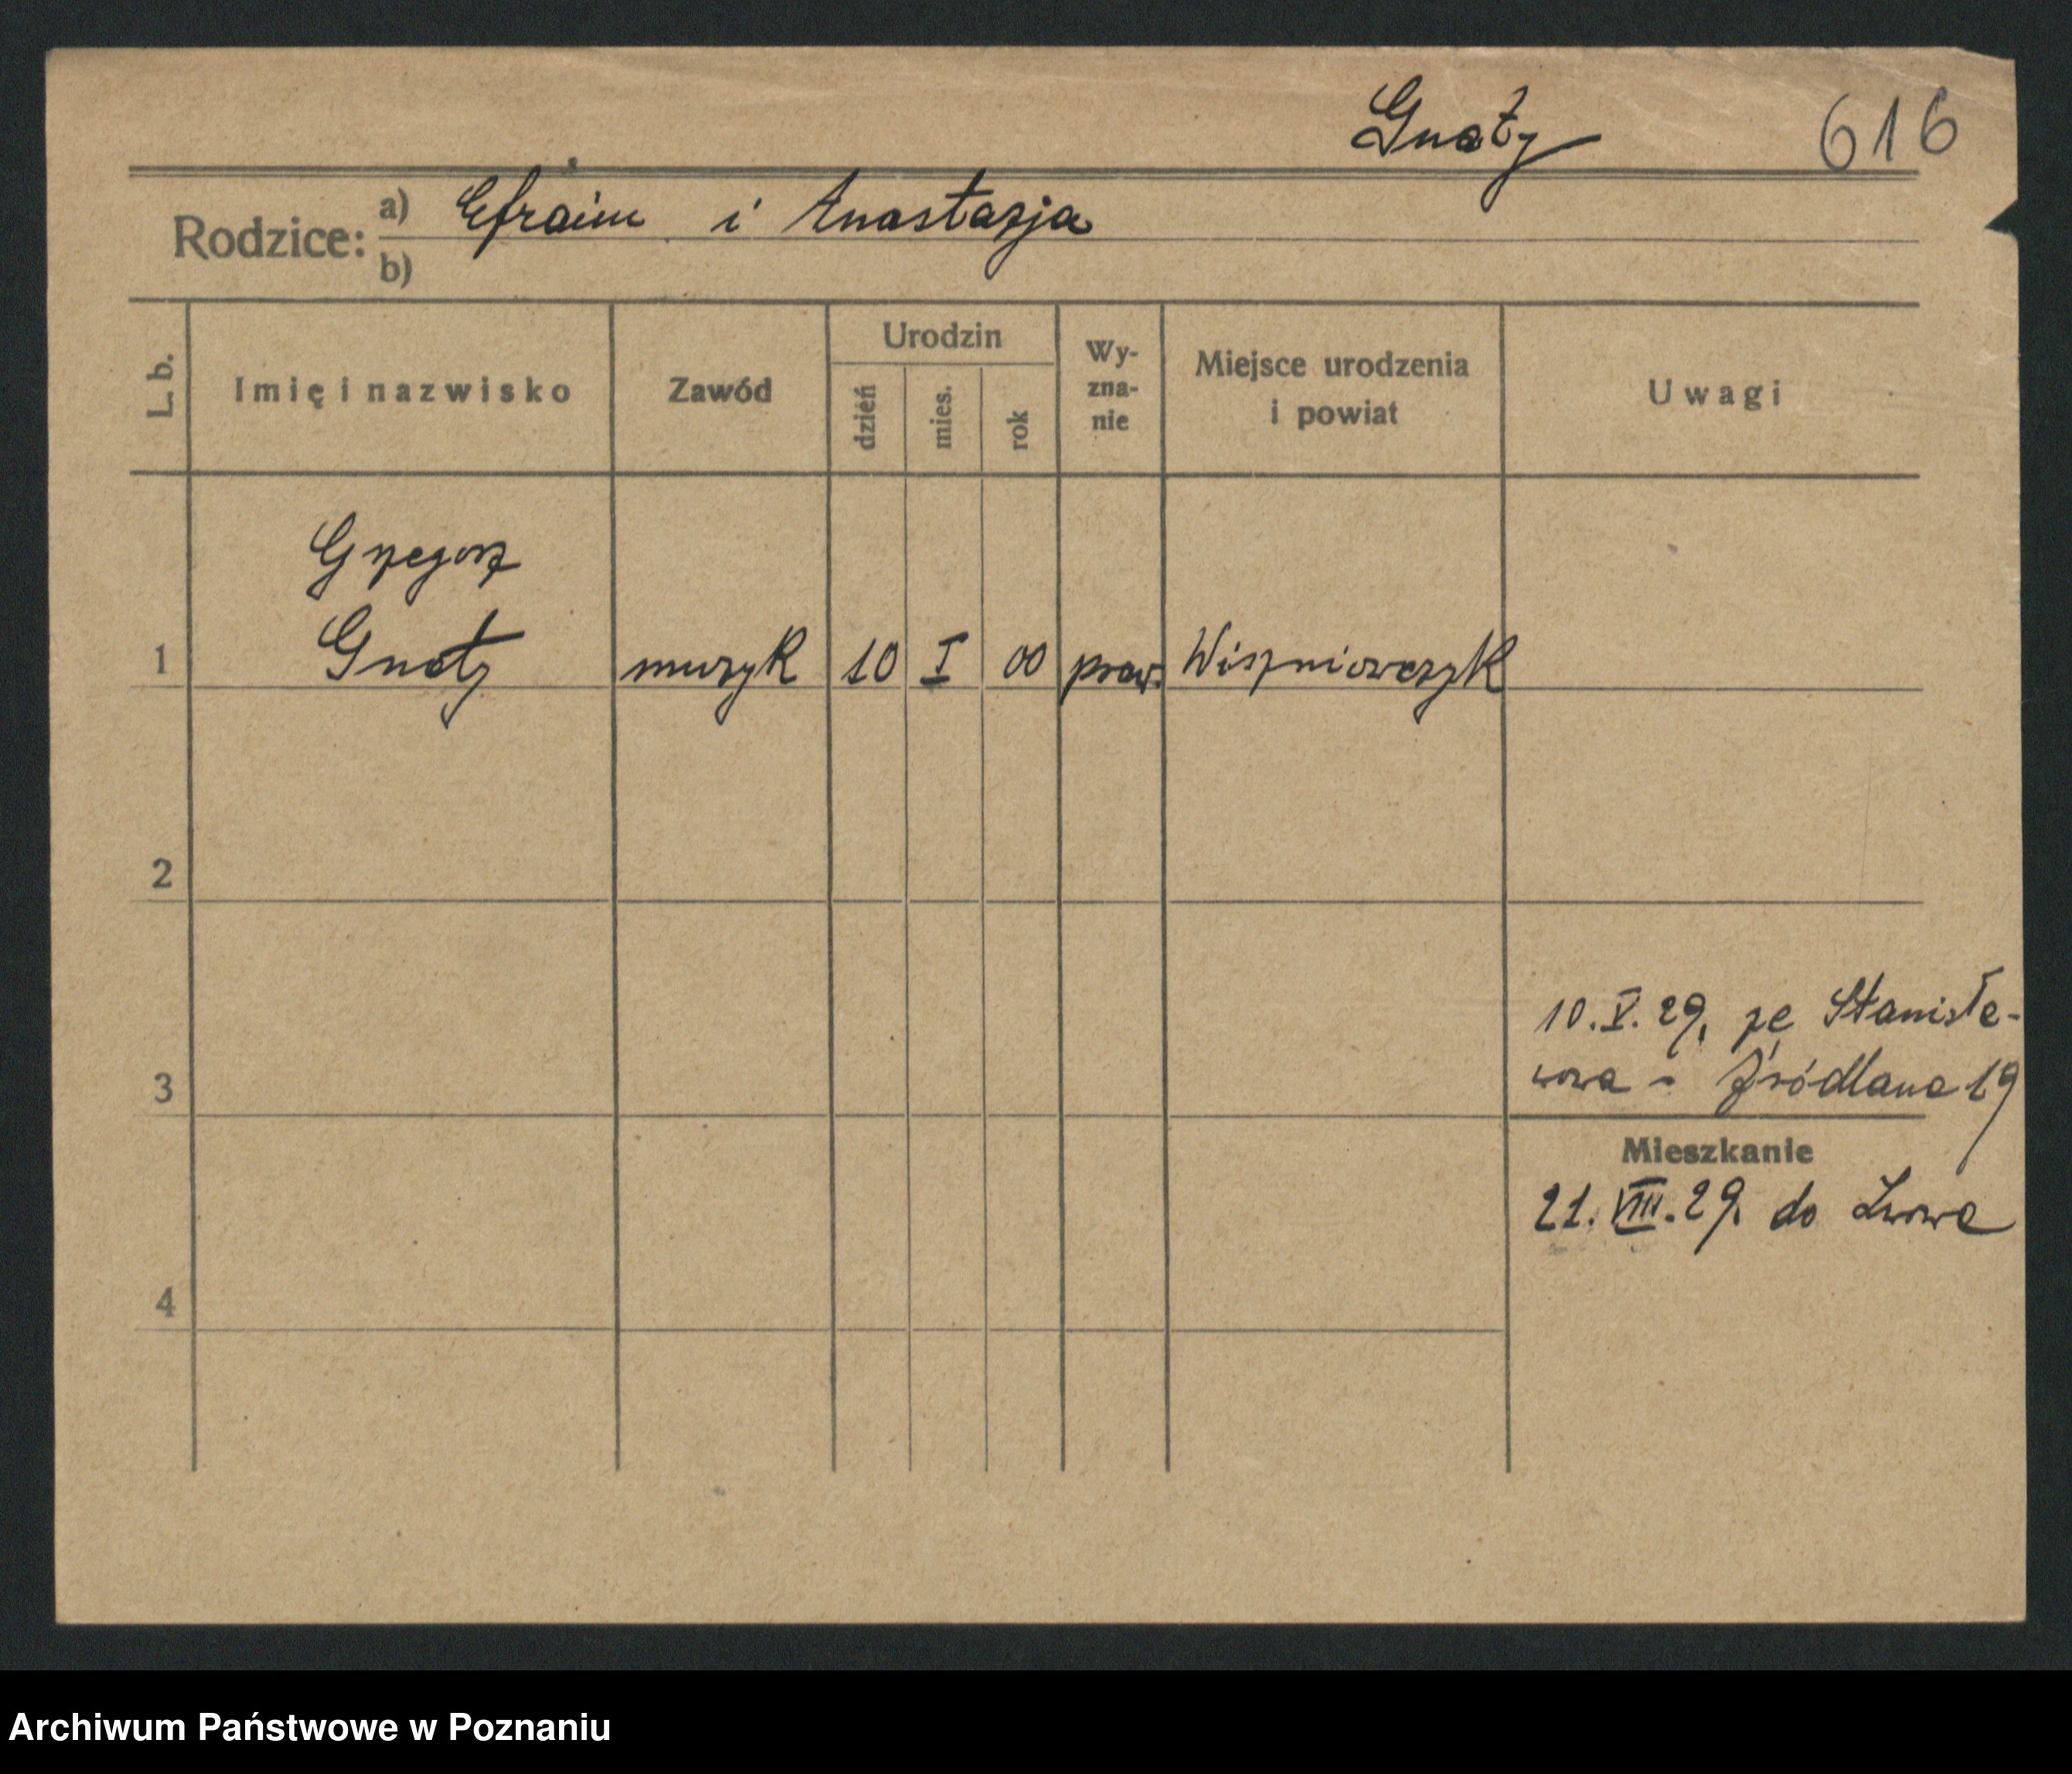 Gnaty 616
Rodzice: a) Efraim i Anastazja
b)
L. b. Imię i nazwisko Zawód Urodzin dzień mies. rok Wy-zna-nie Miejsce urodzenia i powiat Uwagi
Grzegorz
1 Gnaty muzyk 10 I 00 praw. Wiszniowczyk
2
10.V.29. ze Stanisła-
3 wowa - Źródlana 19
Mieszkanie
21.VIII.29. do Lwowa
4
Archiwum Państwowe w Poznaniu